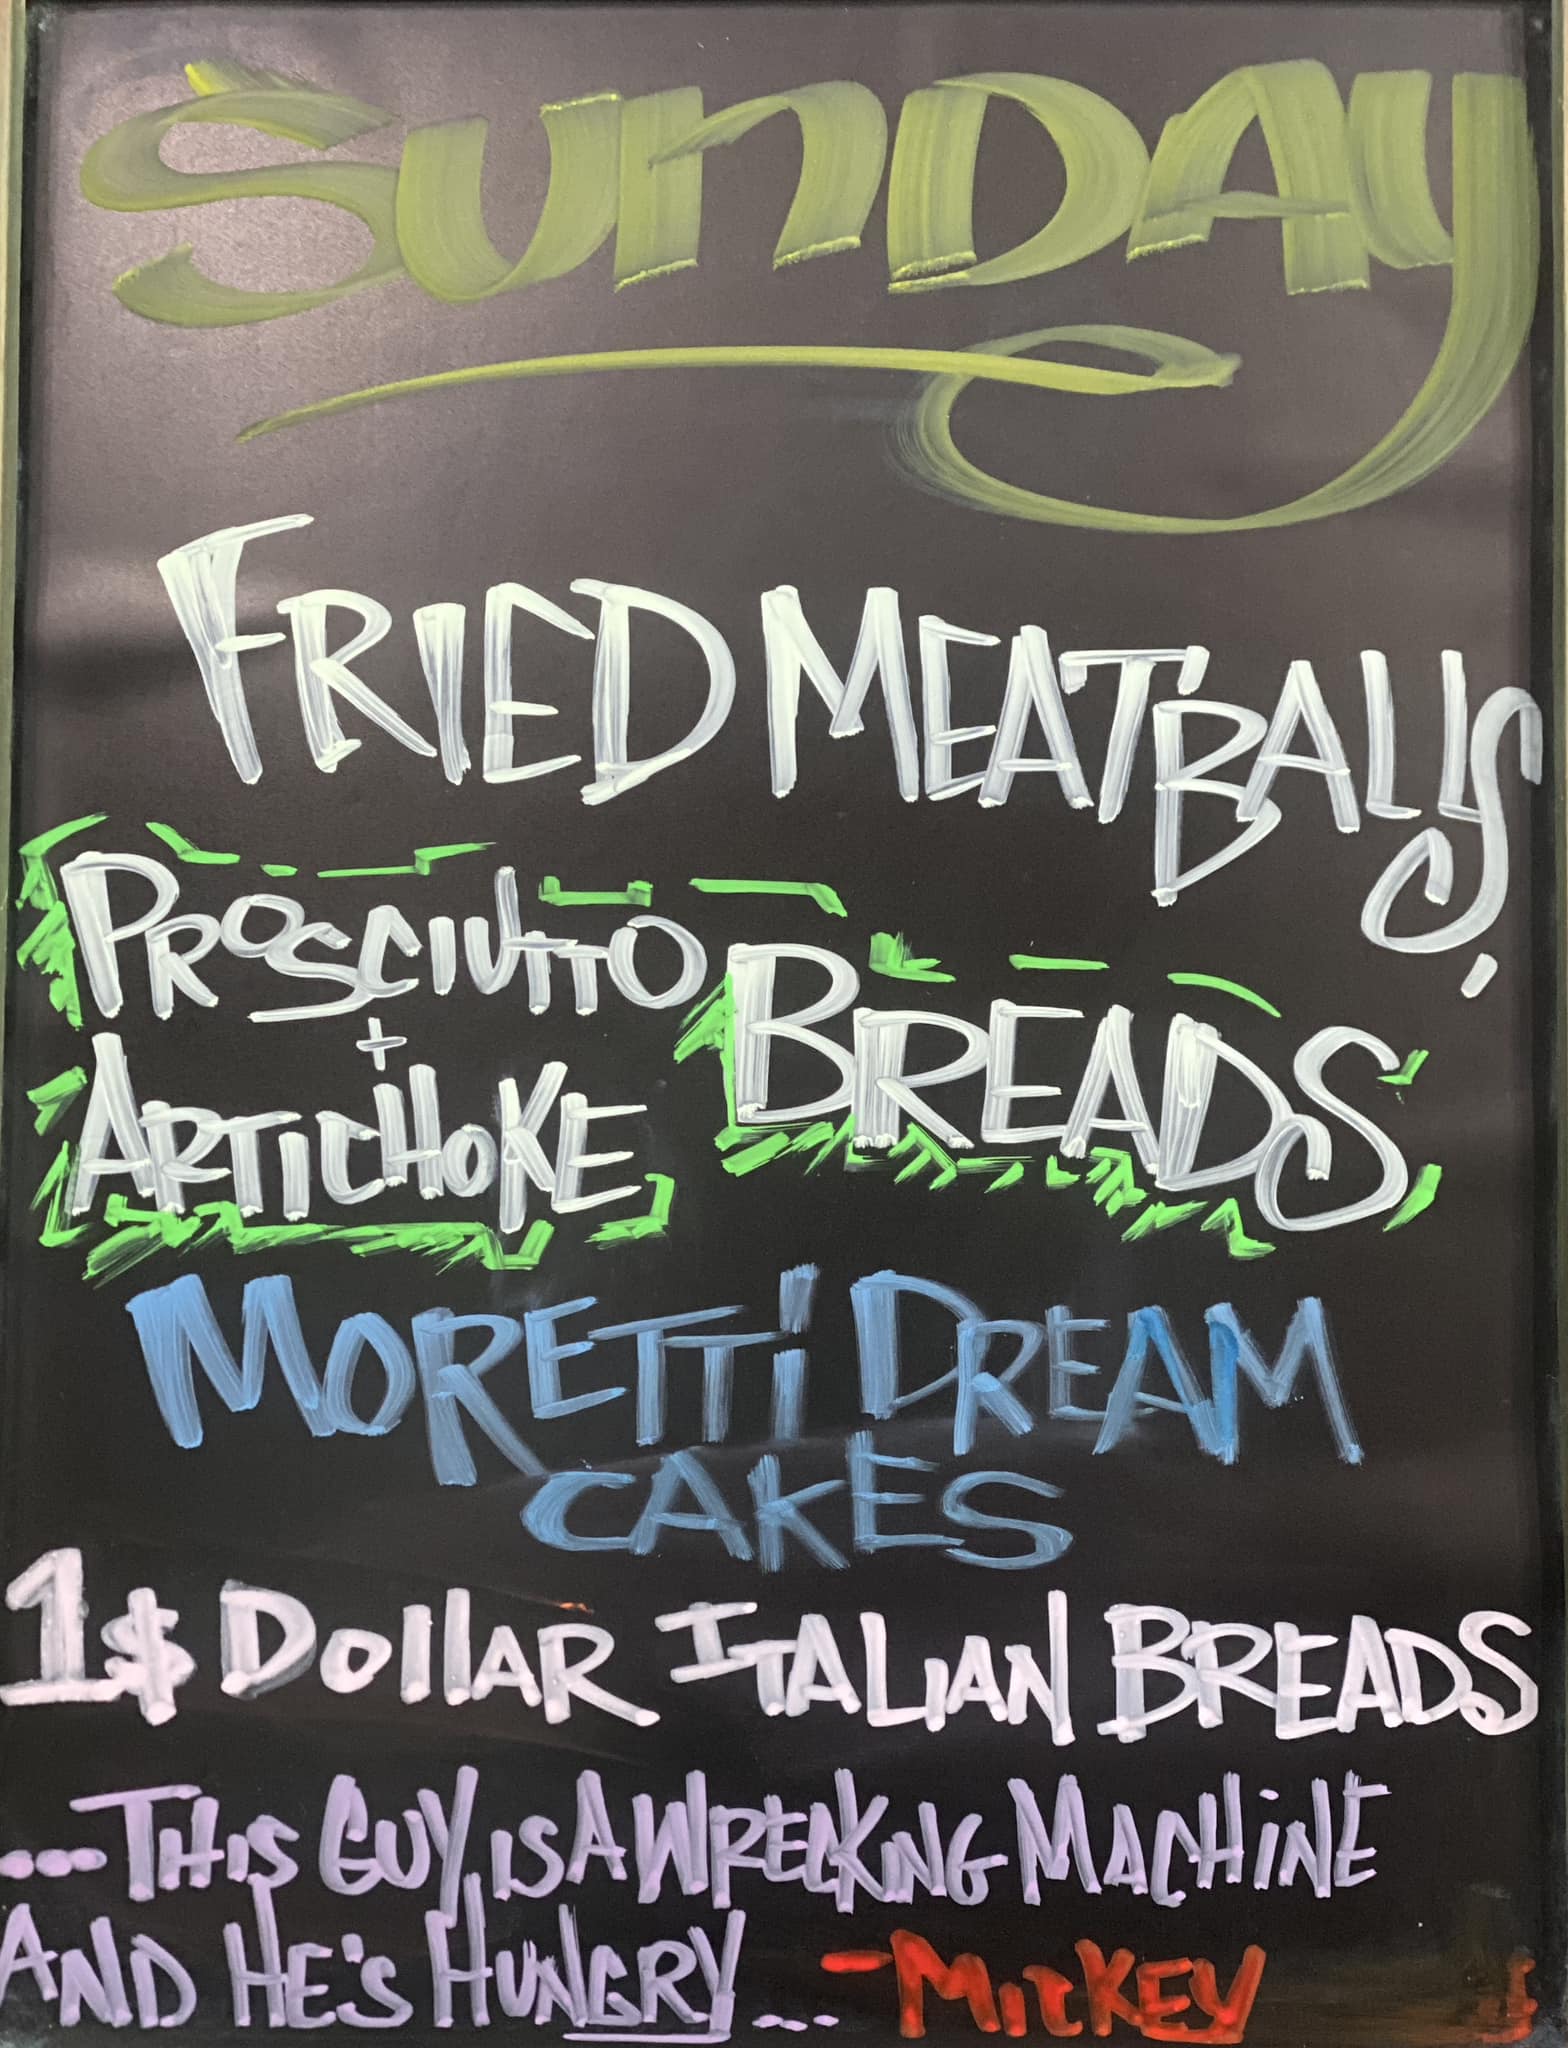 SUNDAY
FRIED MEATBALLS,
PROSCIUTTO
+
ARTICHOKE
BREADS
MORETTI DREAM
CAKES
1$ DOLLAR ITALIAN BREADS
...THIS GUY IS A WRECKING MACHINE
AND HE'S HUNGRY... -MICKEY